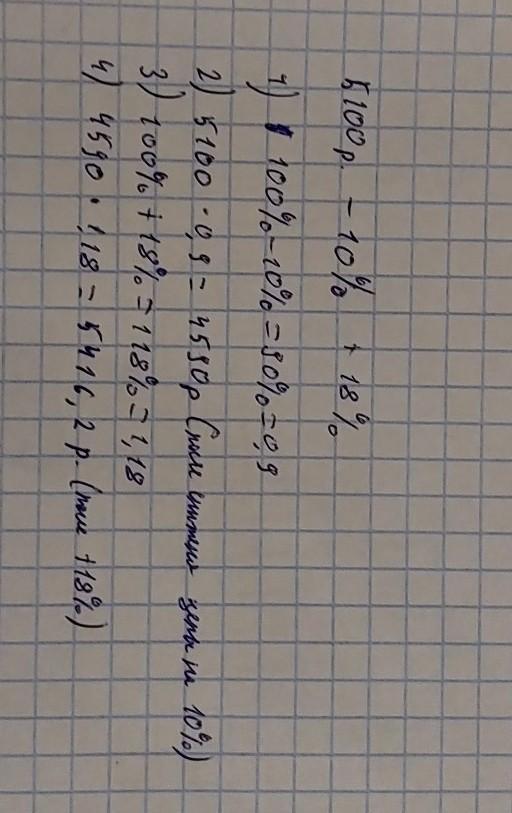 5100р. - 10% + 18%
1) 100%-10%=90%=0,9
2) 5100 · 0,9 = 4590р (после снижения цены на 10%)
3) 100% + 18% = 118% = 1,18
4) 4590 · 1,18 = 5416,2 р. (после +18%)